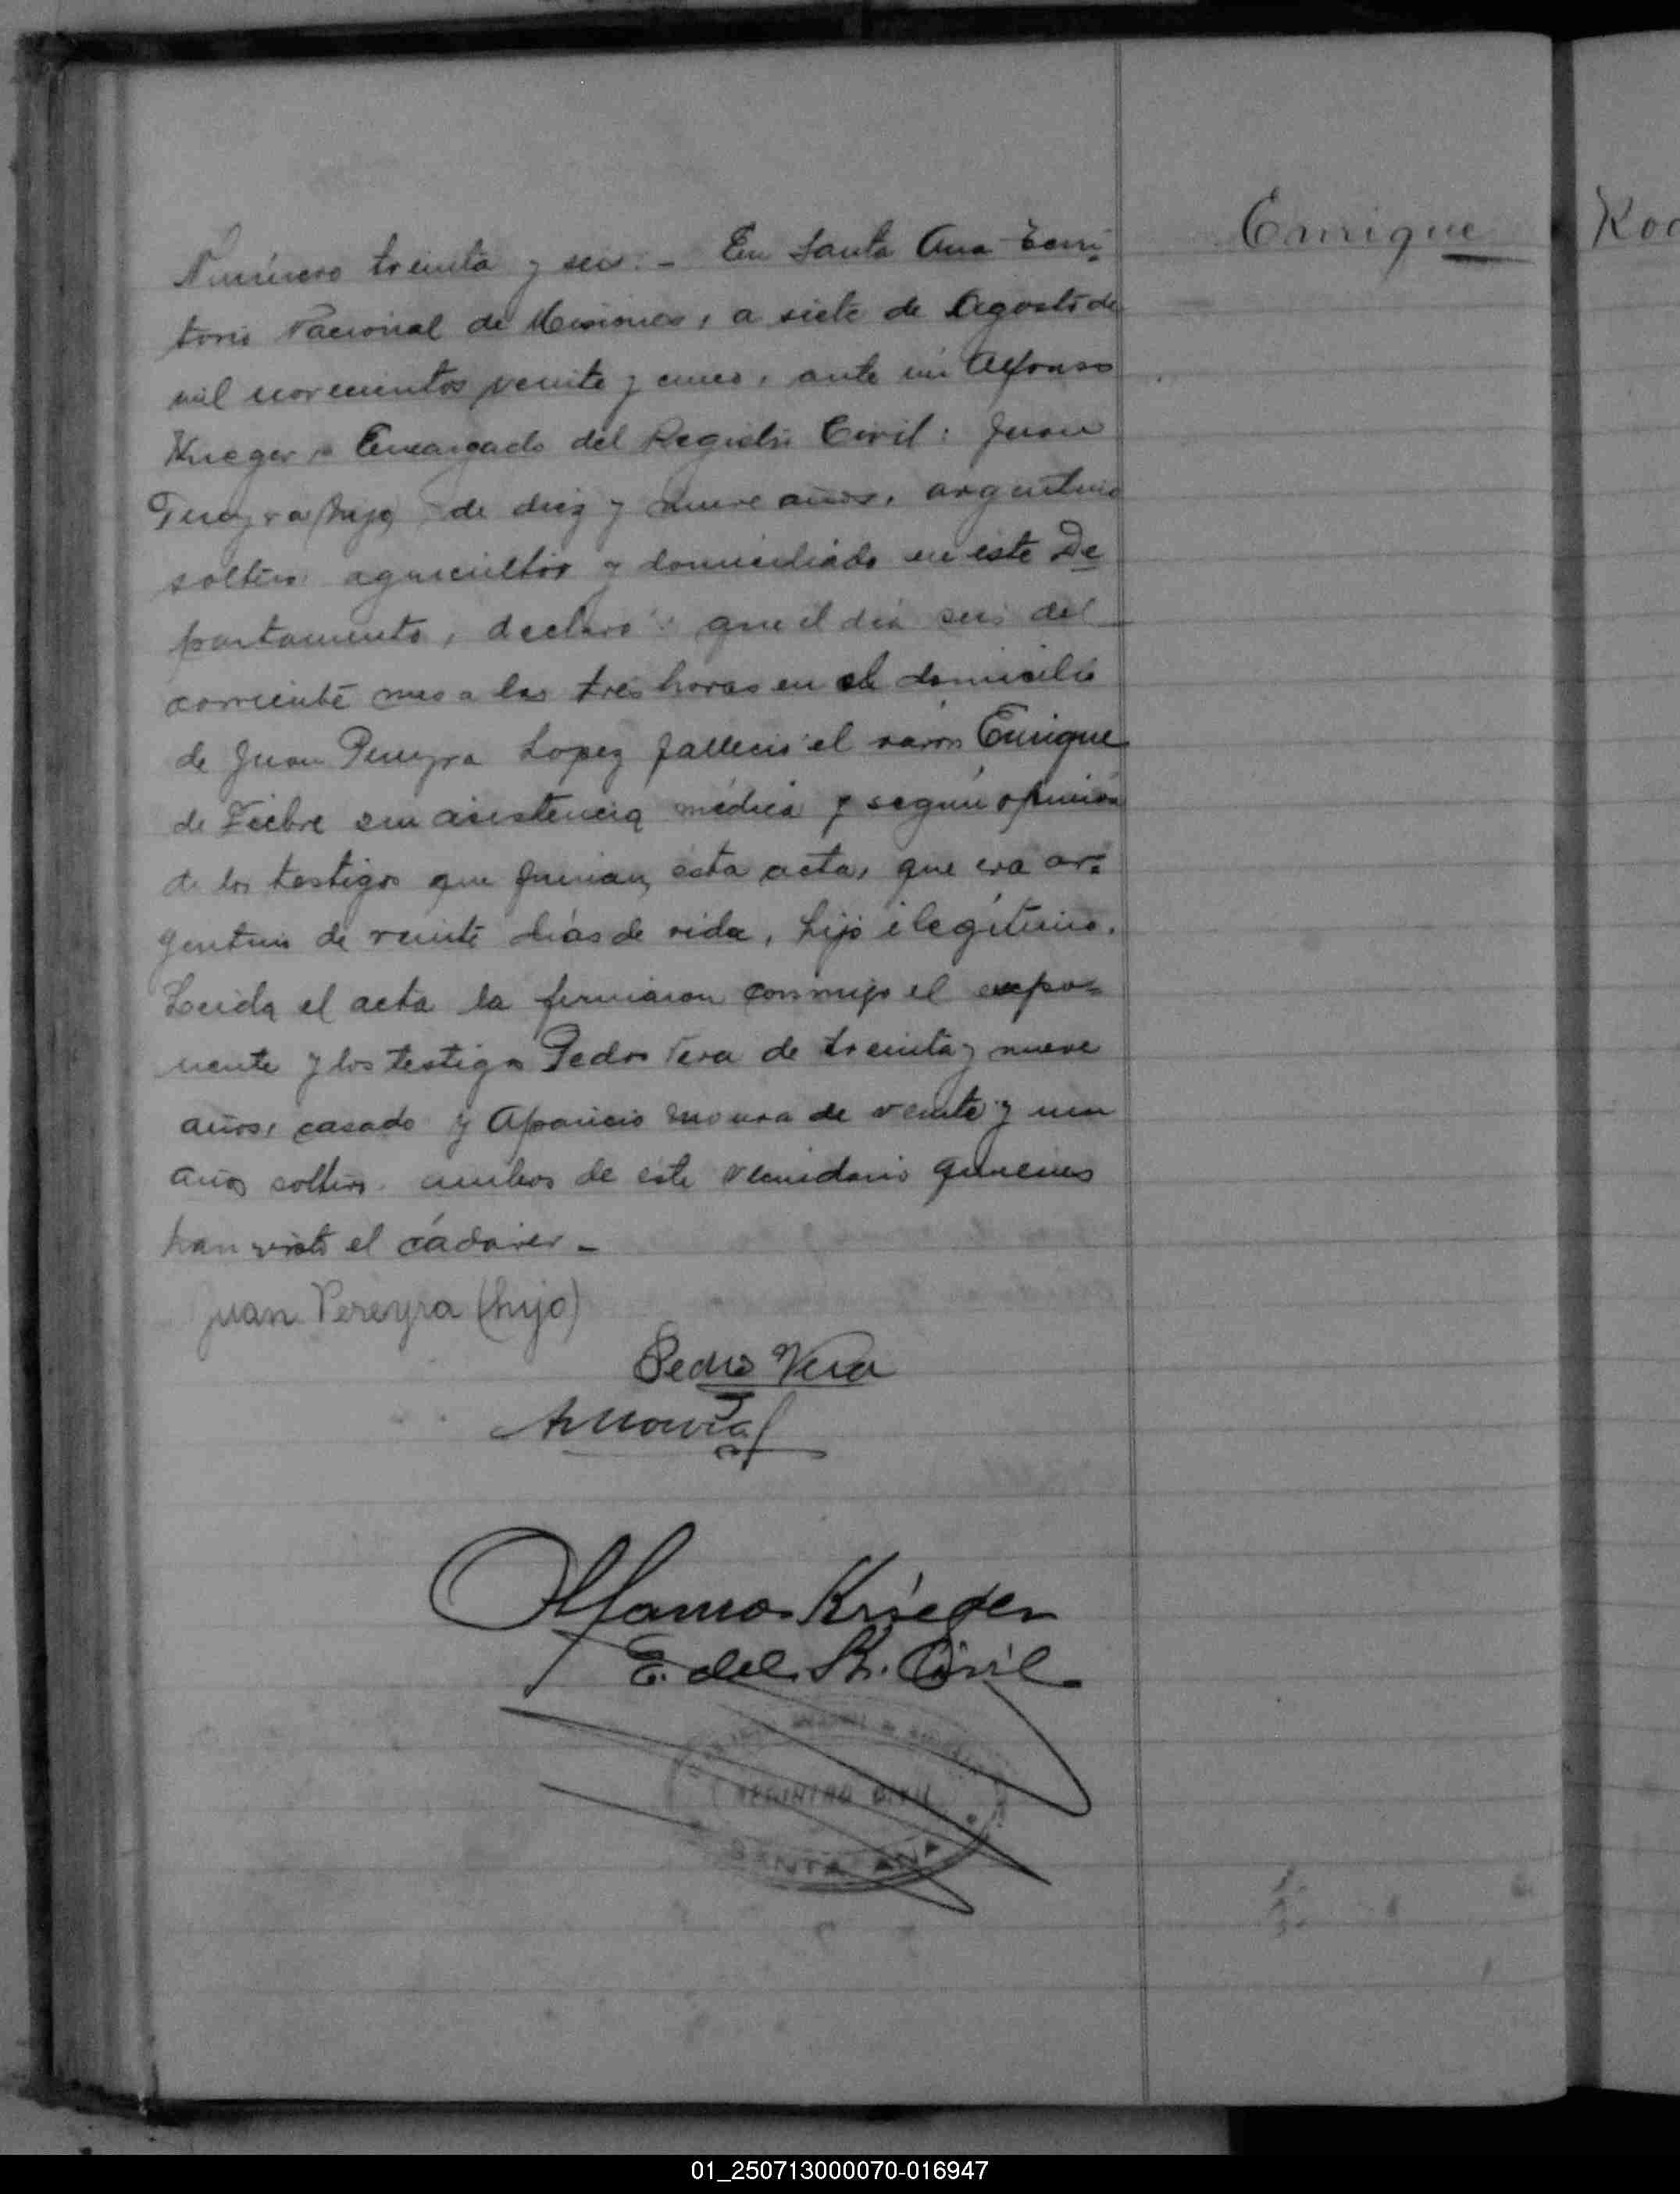 Enrique
Número treinta y seis. - En Santa Ana Terri-
torio Nacional de Misiones, a siete de Agosto de
mil novecientos veinte y cinco, ante mi Alfonso
Krieger Encargado del Registro Civil: Juan
Pereyra (hijo) de diez y nueve años, argentino
soltero agricultor y domiciliado en este De
partamento, declaró: que el día seis del
corriente mes a las tres horas en el domicilio
de Juan Pereyra Lopez falleció el varón Enrique
de Fiebre sin asistencia médica y según opinión
de los testigos que firman esta acta, que era ar-
gentino de veinte días de vida, hijo ilegítimo.
Leida el acta la firmaron conmigo el expo-
nente y los testigos Pedro Vera de treinta y nueve
años, casado y Aparicio Moura de veinte y un
años soltero ambos de este vecindario quienes
han visto el cádaver -
Juan Pereyra (hijo)
Pedro Vera
A Moura
Alfonso Krieger
E. del R. Civil
REGISTRO CIVIL
SANTA ANA
01_250713000070-016947